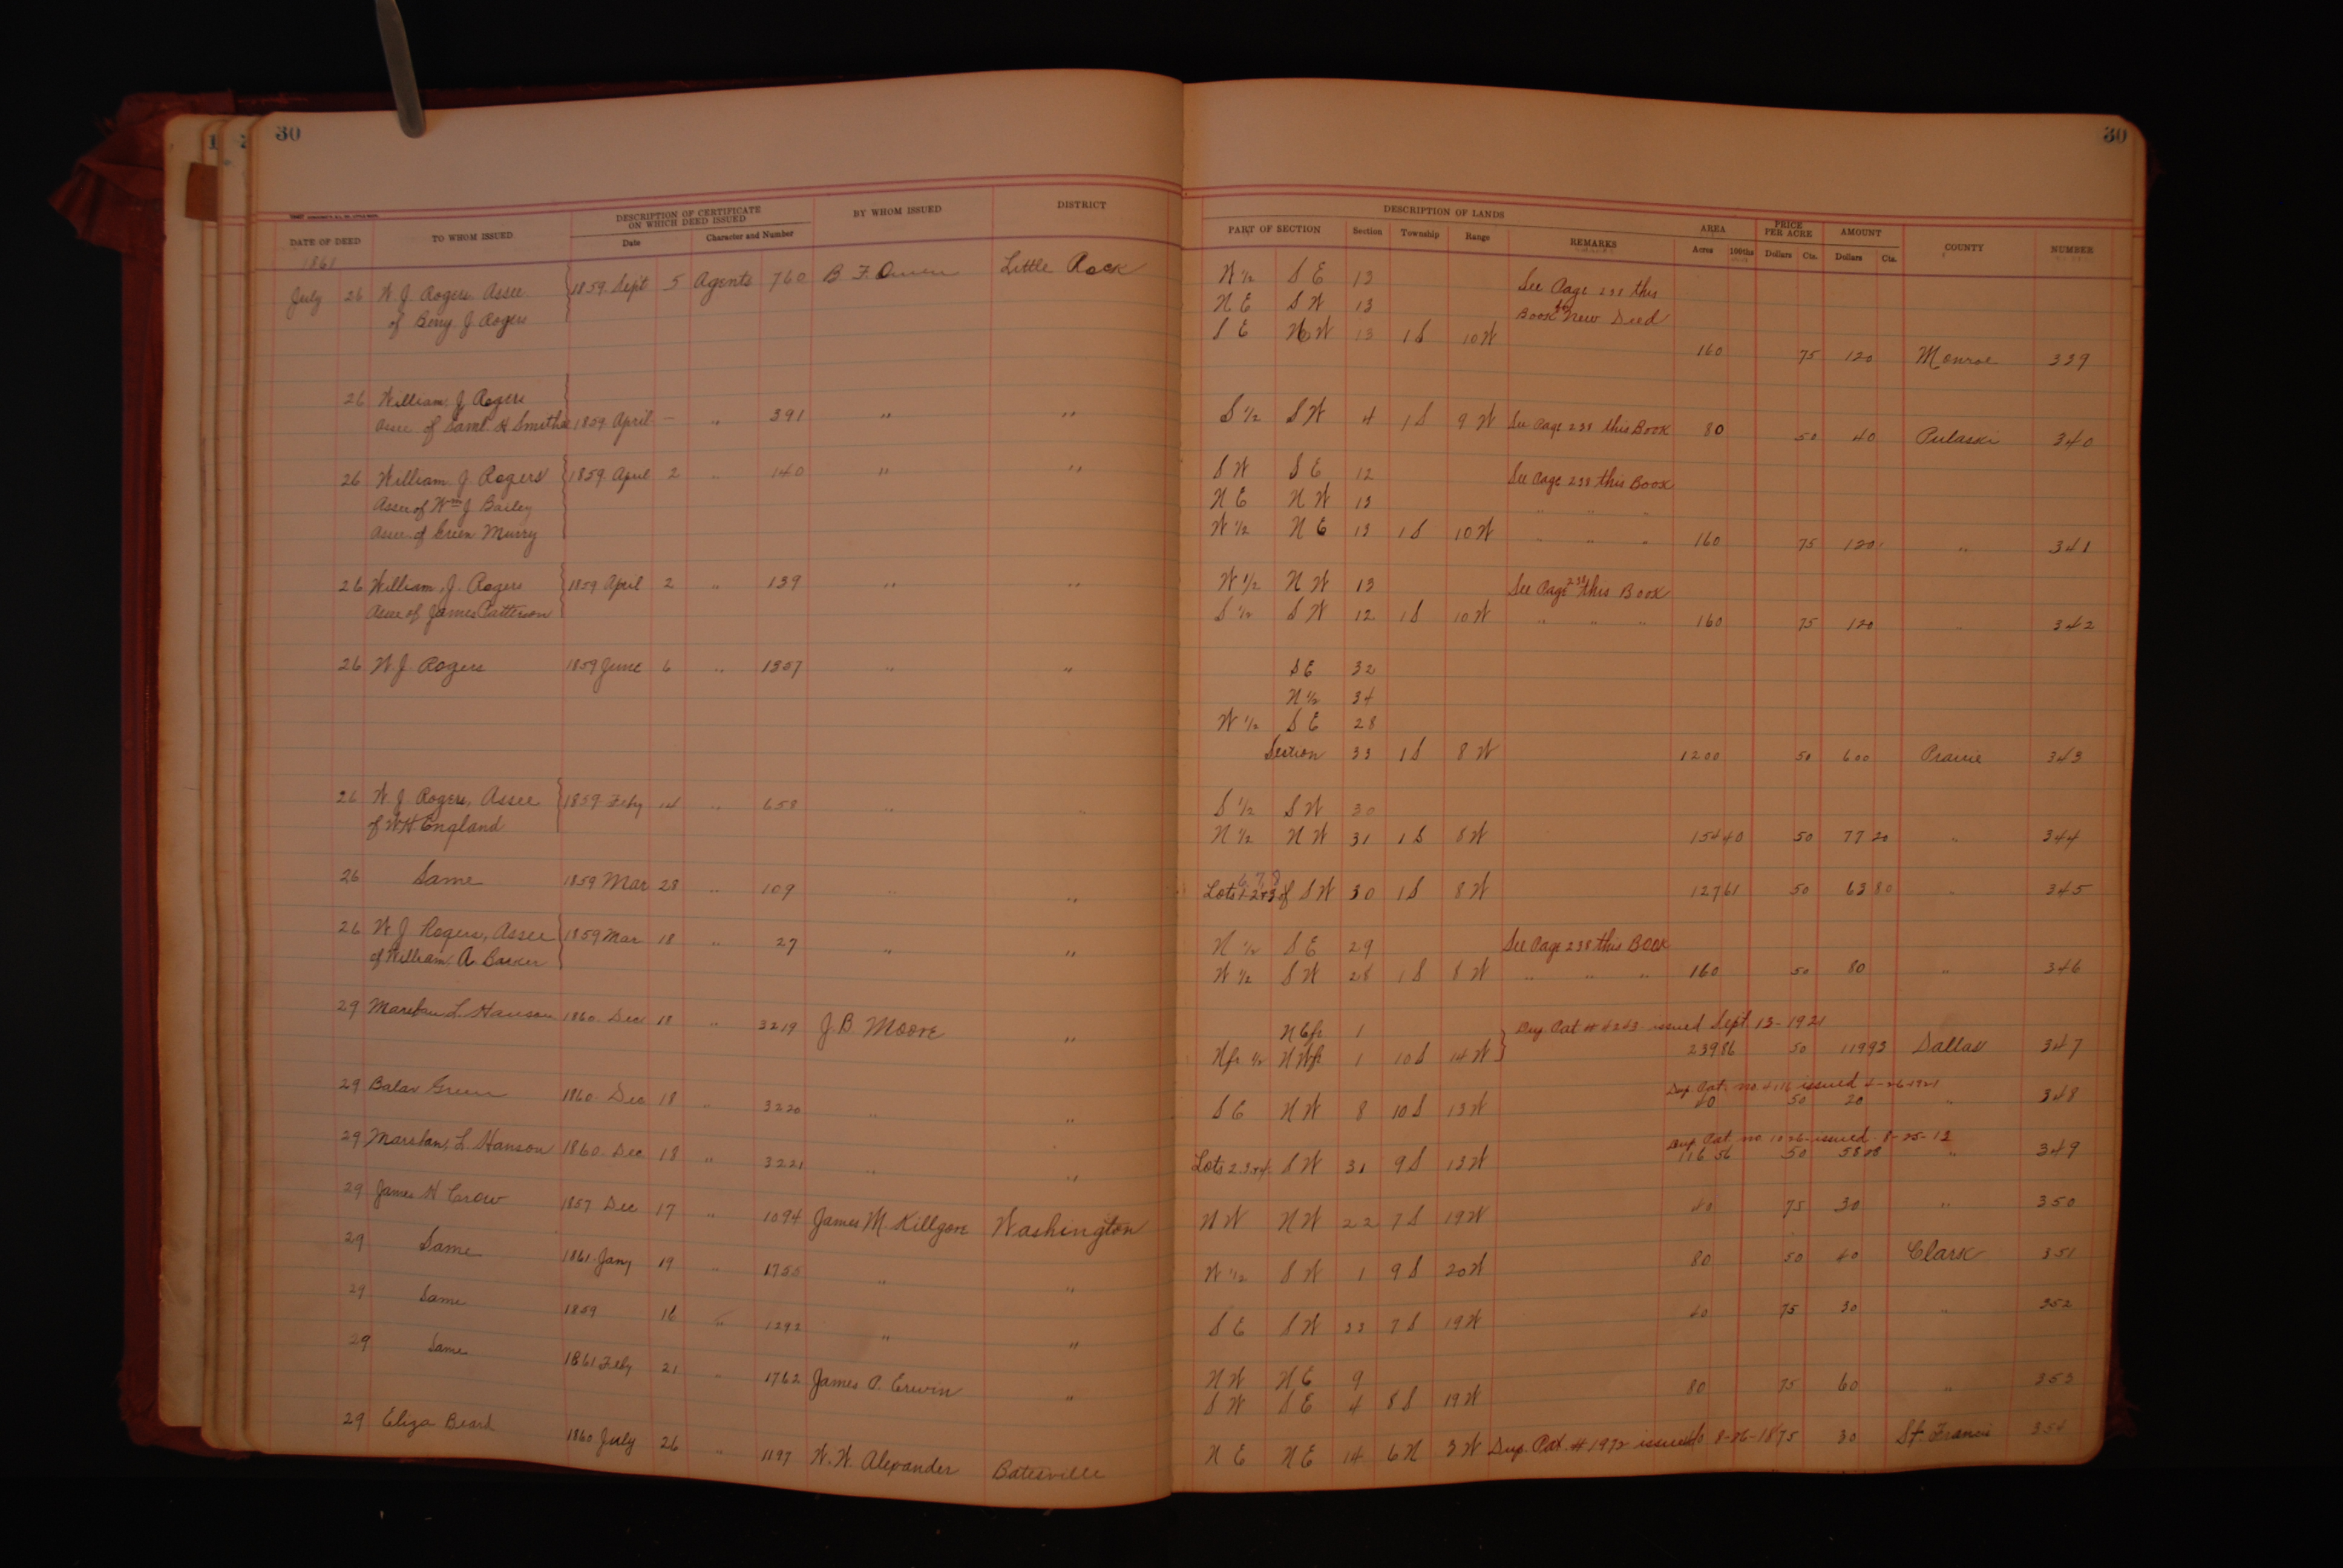 30
30
DATE OF DEED TO WHOM ISSUED DESCRIPTION OF CERTIFICATE ON WHICH DEED ISSUED BY WHOM ISSUED DISTRICT
Date Character and Number
DESCRIPTION OF LANDS AREA PRICE PER ACRE AMOUNT COUNTY NUMBER
PART OF SECTION Section Township Range REMARKS Acres 100ths Dollars Cts. Dollars Cts.
1861
July 26 W J Rogers Assee 1859 Sept 5 Agents 760 B F Owen Little Rock W 1/2 S E 13 See Page 238 this
of Berry J Rogers N E S W 13 Book for New Deed
S E N W 13 1 S 10 W 160 75 120 Monroe 339
26 William J Rogers
Assee of Saml H Smither 1859 April — " 391 " " S 1/2 S W 4 1 S 9 W See Page 238 this Book 80 50 40 Pulaski 340
26 William J. Rogers 1859 April 2 " 140 " " S W S E 12 See Page 238 this Book
Assee of Wm J Bailey N E N W 13 " " "
Assee of Green Murry W 1/2 N E 13 1 S 10 W " " " 160 75 120 " 341
26 William J. Rogers 1859 April 2 " 139 " " W 1/2 N W 13 See Page 238 this Book
Assee of James Patterson S 1/2 S W 12 1 S 10 W " " " 160 75 120 " 342
26 W. J. Rogers 1859 June 6 " 1357 " " S E 32
N 1/2 34
W 1/2 S E 28
Section 33 1 S 8 W 1200 50 600 Prairie 343
26 W J Rogers, Assee 1859 Feby 14 " 658 " " S 1/2 S W 30
of W H England N 1/2 N W 31 1 S 8 W 154 40 50 77 20 " 344
26 Same 1859 Mar 28 " 109 " " 6, 7, 8
Lots 1-2+3 of S W 30 1 S 8 W 127 61 50 63 80 " 345
26 W J Rogers, Assee 1859 Mar 18 " 27 " " N 1/2 S E 29 See Page 238 this Book
of William A Barker W 1/2 S W 28 1 S 8 W " " " 160 50 80 " 346
29 L. Hanson 1860. Dec 18 " 3219 J. B. Moore " N E fr 1 Dup Pat # 4243 issued Sept 13-1921
N fr 1/2 N W fr 1 10 S 14 W 239 86 50 119 93 Dallas 347
Dup Pat. no 4116 issued 4-26-1921
29 Balas Green 1860. Dec 18 " 3220 " " S E N W 8 10 S 13 W 40 50 20 " 348
Dup Pat no 1026 issued 8-25-13
29 L. Hanson 1860. Dec 18 " 3221 " " Lots 2.3.+4. S W 31 9 S 13 W 116 56 50 58 28 " 349
29 James H Crow 1857 Dec 17 " 1094 James M. Killgore Washington N W N W 22 7 S 19 W 40 75 30 " 350
29 Same 1861 Jany 19 " 1755 " " W 1/2 S W 1 9 S 20 W 80 50 40 Clark 351
29 Same 1859 16 " 1292 " " S E S W 33 7 S 19 W 40 75 30 " 352
29 Same 1861 Feby 21 " 1762 James P. Erwin " N W N E 9
S W S E 4 8 S 19 W 80 75 60 " 353
29 Eliza Beard 1860 July 26 " 1197 W. W. Alexander Batesville N E N E 14 6 N 3 W Dup. Pat. # 1972 issued 8-26-18 75 30 St. Francis 354